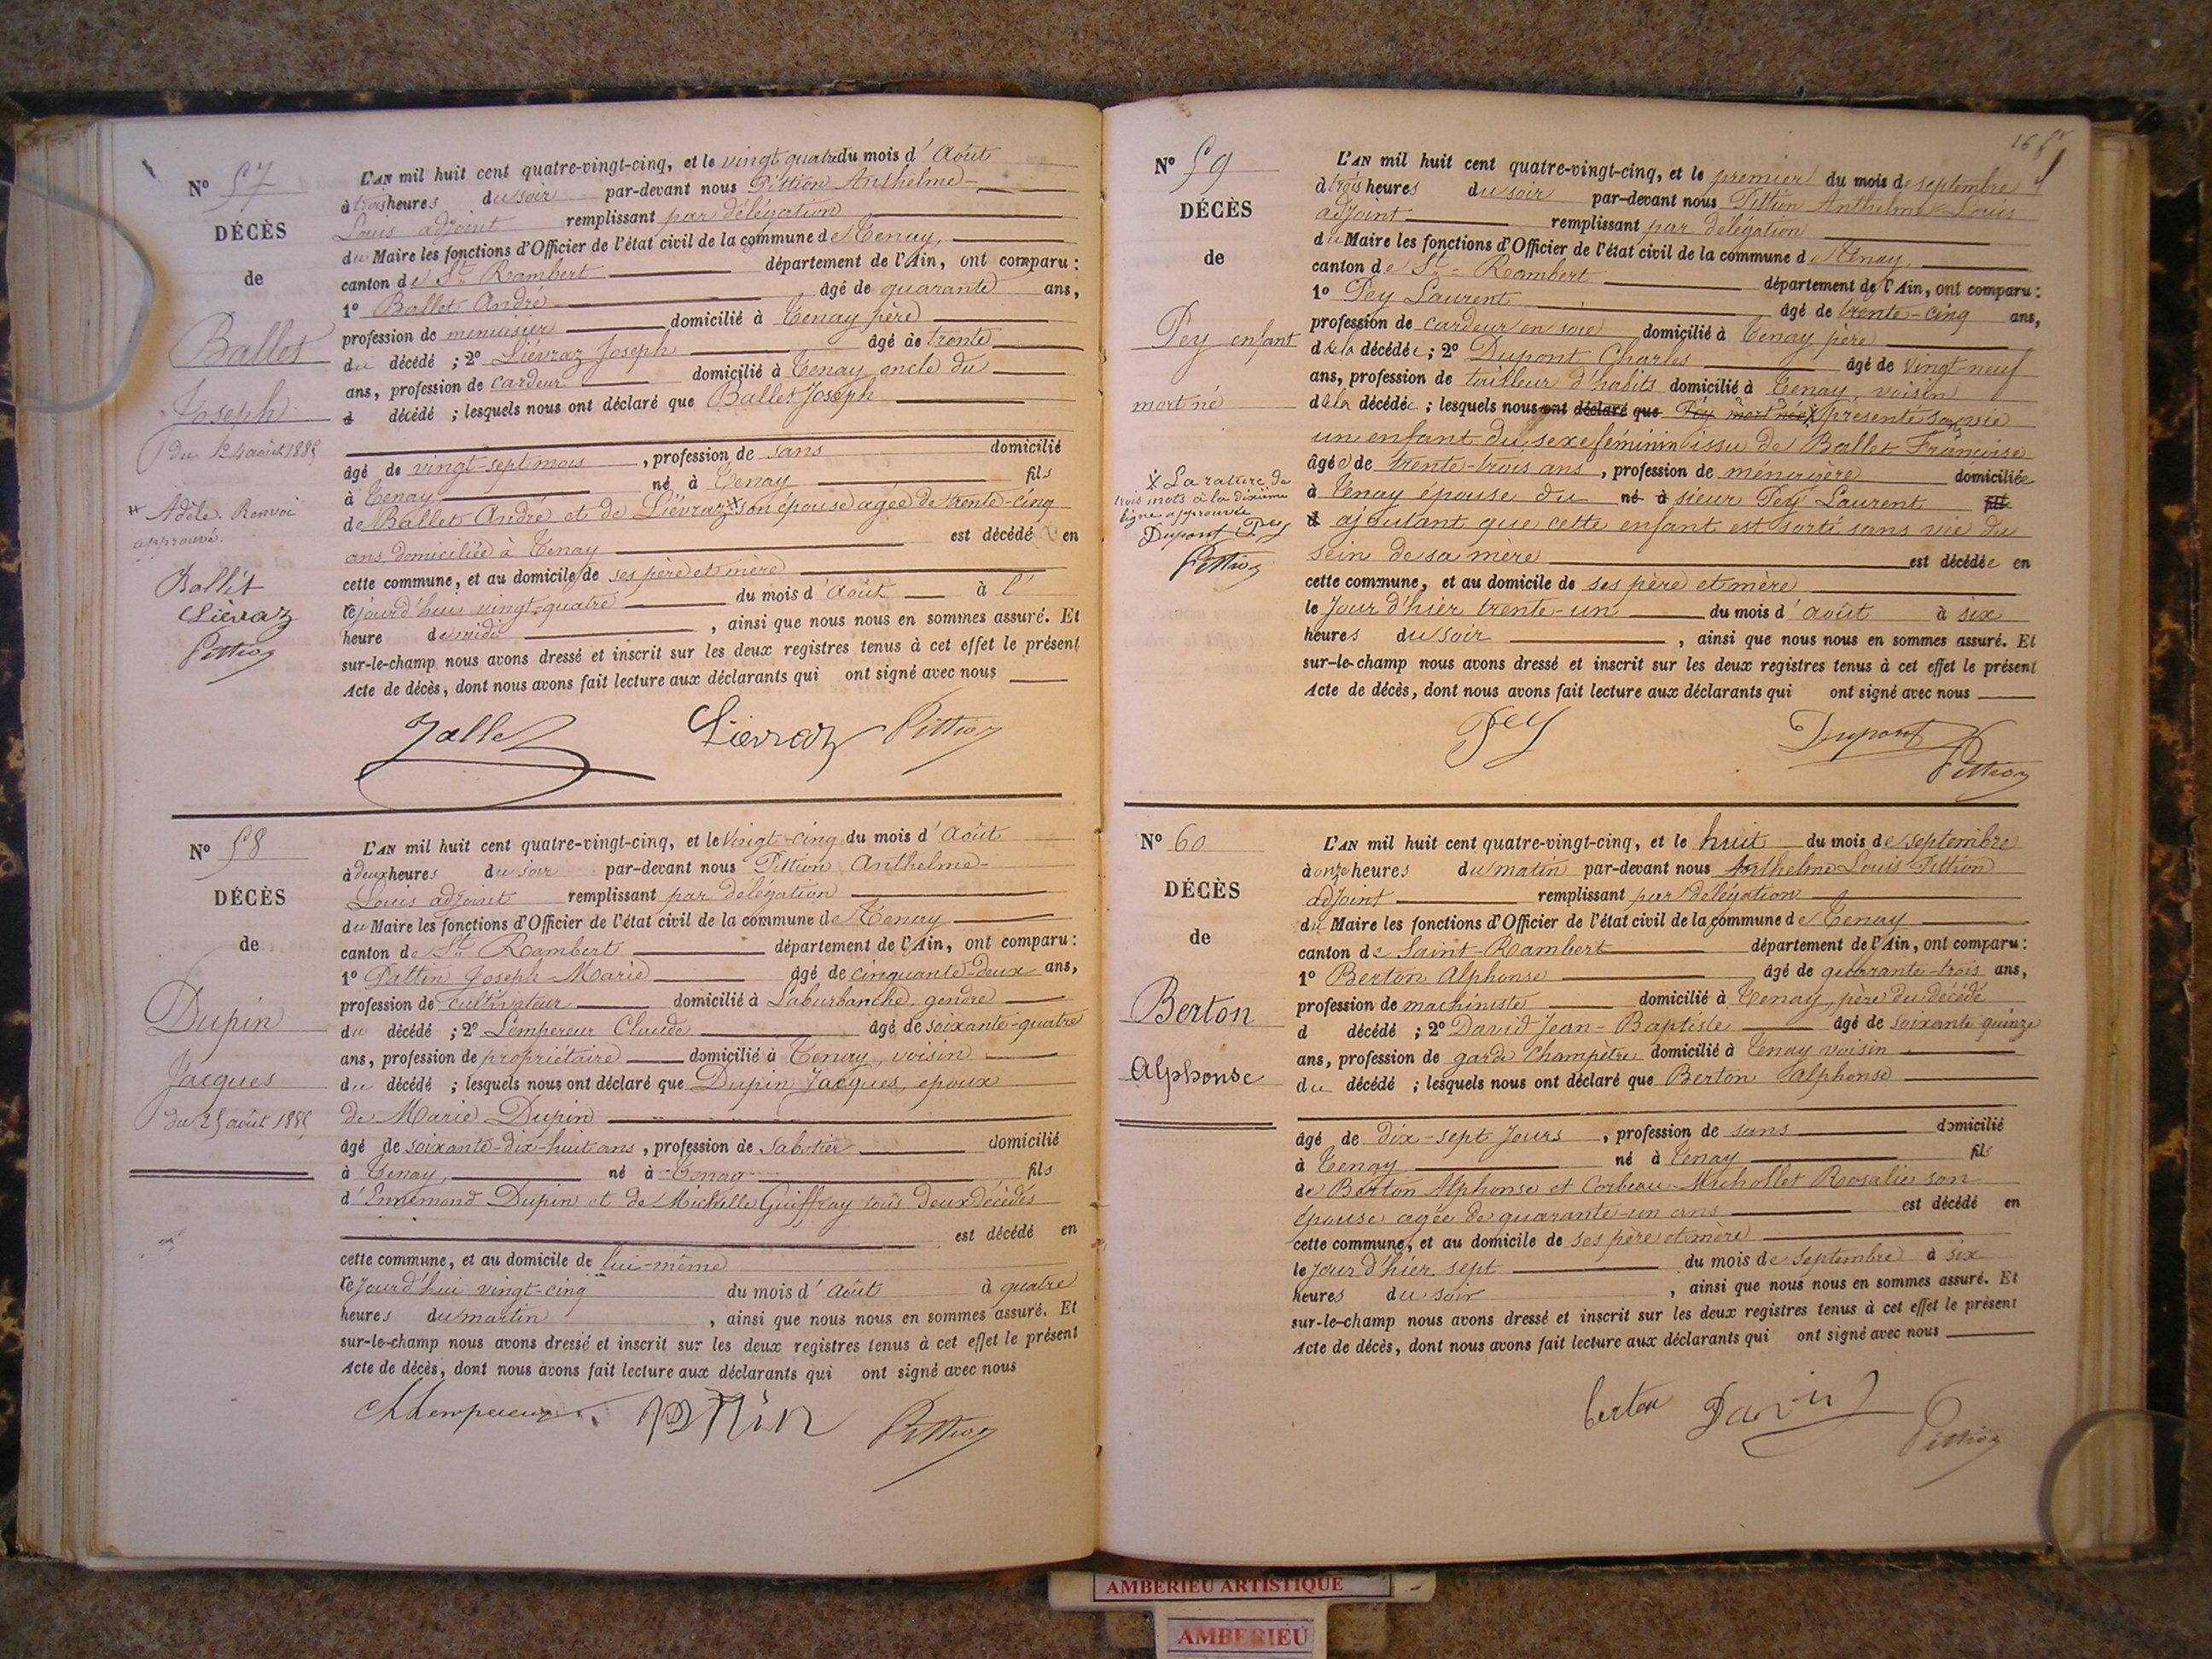 Nº 57
DÉCÈS
de
Ballet
Joseph
du 24 août 1885
Adèle. Renvoi
approuvé.
Ballet
Lièvraz
Pittion
L'AN mil huit cent quatre-vingt-cinq, et le vingt quatre du mois d'Août
à trois heures du soir par-devant nous Pittion Anthelme-
Louis adjoint remplissant par délégation
du Maire les fonctions d'Officier de l'état civil de la commune de Tenay,
canton de St. Rambert département de l'Ain, ont comparu :
1º Ballet André âgé de quarante ans,
profession de menuisier domicilié à Tenay père
du décédé ; 2º Liévraz Joseph âgé de trente
ans, profession de cardeur domicilié à Tenay oncle du
d décédé ; lesquels nous ont déclaré que Ballet Joseph
âgé de vingt-sept mois , profession de sans domicilié
à Tenay né à Tenay fils
de Ballet André et de Liévraz x son épouse agée de trente-cinq
ans domiciliée à Tenay est décédé en
cette commune, et au domicile de ses père et mère
le jourd'hui vingt-quatre du mois d'Août à l'
heure de midi , ainsi que nous nous en sommes assuré. Et
sur-le-champ nous avons dressé et inscrit sur les deux registres tenus à cet effet le présent
Acte de décès, dont nous avons fait lecture aux déclarants qui ont signé avec nous
Ballet Lièvraz Pittion
Nº 58
DÉCÈS
de
Dupin
Jacques
du 25 août 1885
L'AN mil huit cent quatre-vingt-cinq, et le Vingt-cinq du mois d'Août
à deux heures du soir par-devant nous Pittion Anthelme-
Louis adjoint remplissant par délégation
du Maire les fonctions d'Officier de l'état civil de la commune de Tenay
canton de St. Rambert département de l'Ain, ont comparu :
1º Pattin Joseph-Marie âgé de cinquante-deux ans,
profession de cultivateur domicilié à Laburbanche, gendre
du décédé ; 2º Lempereur Claude âgé de soixante-quatre
ans, profession de propriétaire domicilié à Tenay, voisin
du décédé ; lesquels nous ont déclaré que Dupin Jacques, époux
de Marie Dupin
âgé de soixante-dix-huit ans , profession de Sabotier domicilié
à Tenay, né à Tenay fils
d'Ennemond Dupin et de Michelle Guiffray tous deux décédés
est décédé en
cette commune, et au domicile de lui-même
le jourd'hui vingt-cinq du mois d'Août à quatre
heures du martin , ainsi que nous nous en sommes assuré. Et
sur-le-champ nous avons dressé et inscrit sur les deux registres tenus à cet effet le présent
Acte de décès, dont nous avons fait lecture aux déclarants qui ont signé avec nous
Lempereur pattin Pittion
Nº 59
DÉCÈS
de
Pey enfant
mort né
x La rature de
trois mots à la dixième
ligne approuvée
Dupont Pey
Pittion
L'AN mil huit cent quatre-vingt-cinq, et le premier du mois de septembre
à trois heures du soir par-devant nous Pittion Anthelme-Louis
adjoint remplissant par délégation
du Maire les fonctions d'Officier de l'état civil de la commune de Tenay
canton de St.-Rambert département de l'Ain, ont comparu :
1º Pey Laurent âgé de trente-cinq ans,
profession de cardeur en soie domicilié à Tenay père
de la décédée ; 2º Dupont Charles âgé de vingt-neuf
ans, profession de tailleur d'habits domicilié à Tenay voisin
de la décédée ; lesquels nous ont déclaré que Pey mort née x présenté sans vie
un enfant du sexe féminin issu de Ballet Francoise
âgée de trente-trois ans , profession de ménagère domiciliée
à Tenay épouse du né à sieur Pey Laurent fil
d ajoutant que cette enfant est sorté sans vie du
sein de sa mère est décédée en
cette commune, et au domicile de ses père et mère
le Jour d'hier trente-un du mois d'août à six
heures du soir , ainsi que nous nous en sommes assuré. Et
sur-le-champ nous avons dressé et inscrit sur les deux registres tenus à cet effet le présent
Acte de décès, dont nous avons fait lecture aux déclarants qui ont signé avec nous
Pey Dupont
Pittion
Nº 60
DÉCÈS
de
Berton
Alphonse
L'AN mil huit cent quatre-vingt-cinq, et le huit du mois de septembre
à onze heures du matin par-devant nous Anthelme Louis Pittion
adjoint remplissant par délégation
du Maire les fonctions d'Officier de l'état civil de la commune de Tenay
canton de Saint-Rambert département de l'Ain, ont comparu :
1º Berton Alphonse âgé de quarante-trois ans,
profession de machiniste domicilié à Tenay, père du décédé
d décédé ; 2º David Jean-Baptiste âgé de soixante quinze
ans, profession de garde champêtre domicilié à Tenay voisin
du décédé ; lesquels nous ont déclaré que Berton Alphonse
âgé de dix-sept Jours , profession de sans domicilié
à Tenay né à Tenay fils
de Berton Alphonse et Corbeau-Michollet Rosalie son
épouse agée de quarante-un ans est décédé en
cette commune, et au domicile de ses père et mère
le jour d'hier sept du mois de septembre à six
heures du soir , ainsi que nous nous en sommes assuré. Et
sur-le-champ nous avons dressé et inscrit sur les deux registres tenus à cet effet le présent
Acte de décès, dont nous avons fait lecture aux déclarants qui ont signé avec nous
berton David Pittion
AMBERIEU ARTISTIQUE
AMBERIEU